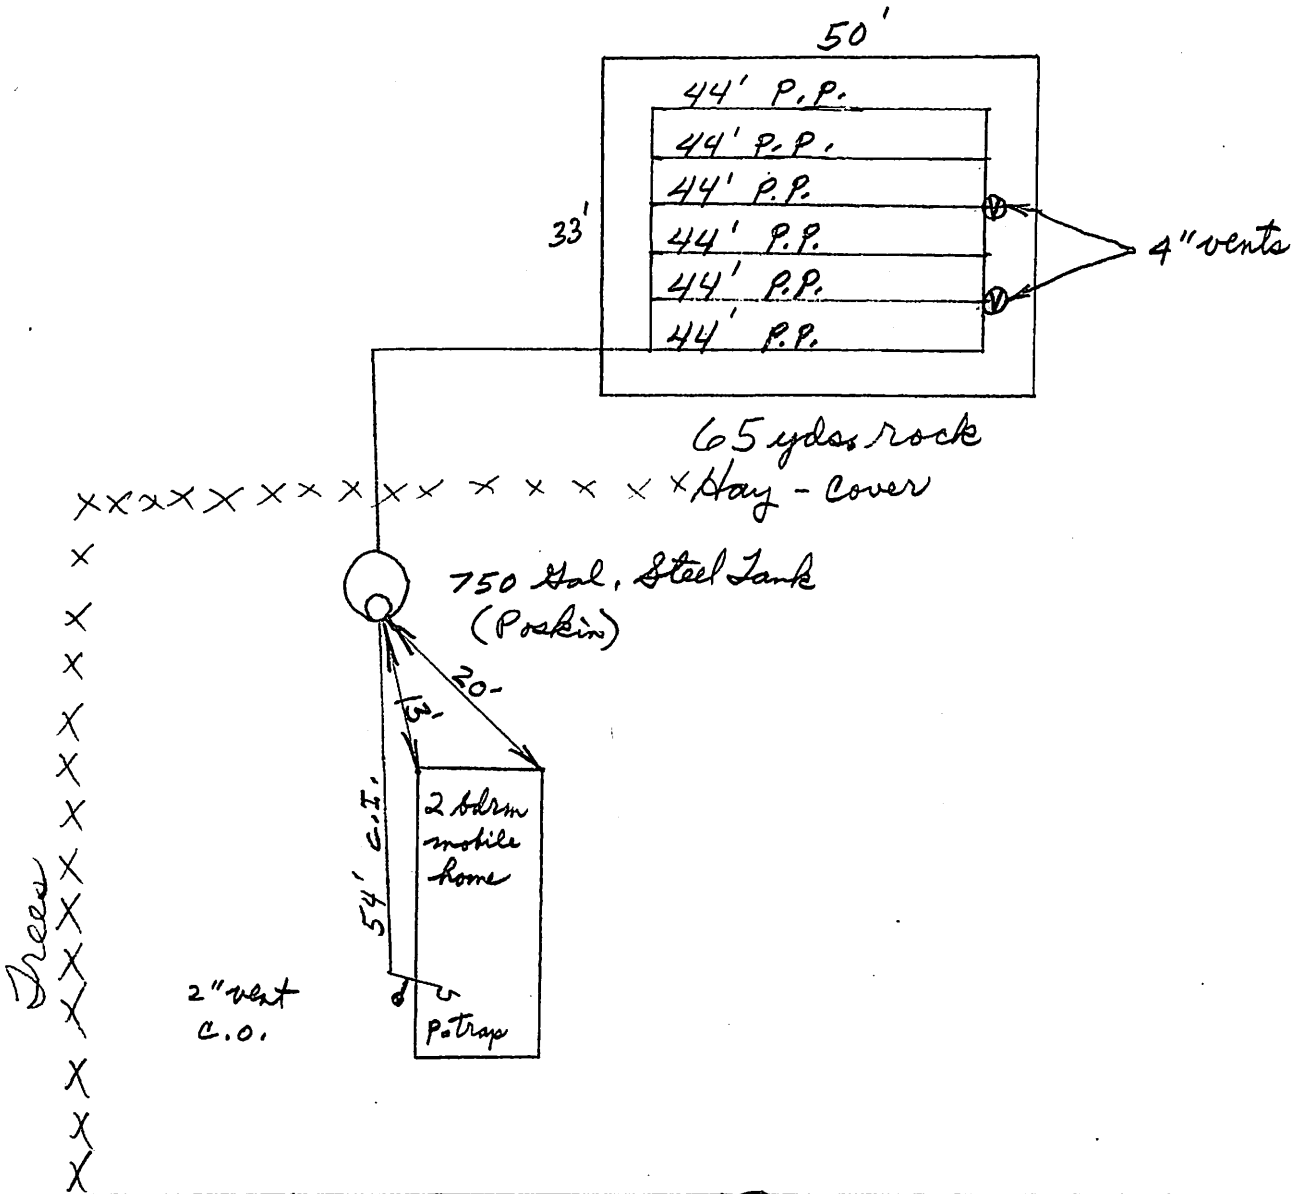 50'
44' P.P.
44' P.P.
44' P.P.
44' P.P.
44' P.P.
44' P.P.
33'
V
V
4" vents
65 yds. rock
Hay - Cover
750 Gal. Steel Tank
(Poskin)
20-
13'
54' C.I.
2 bdrm
mobile
home
Trees
2" vent
C.O.
P.trap